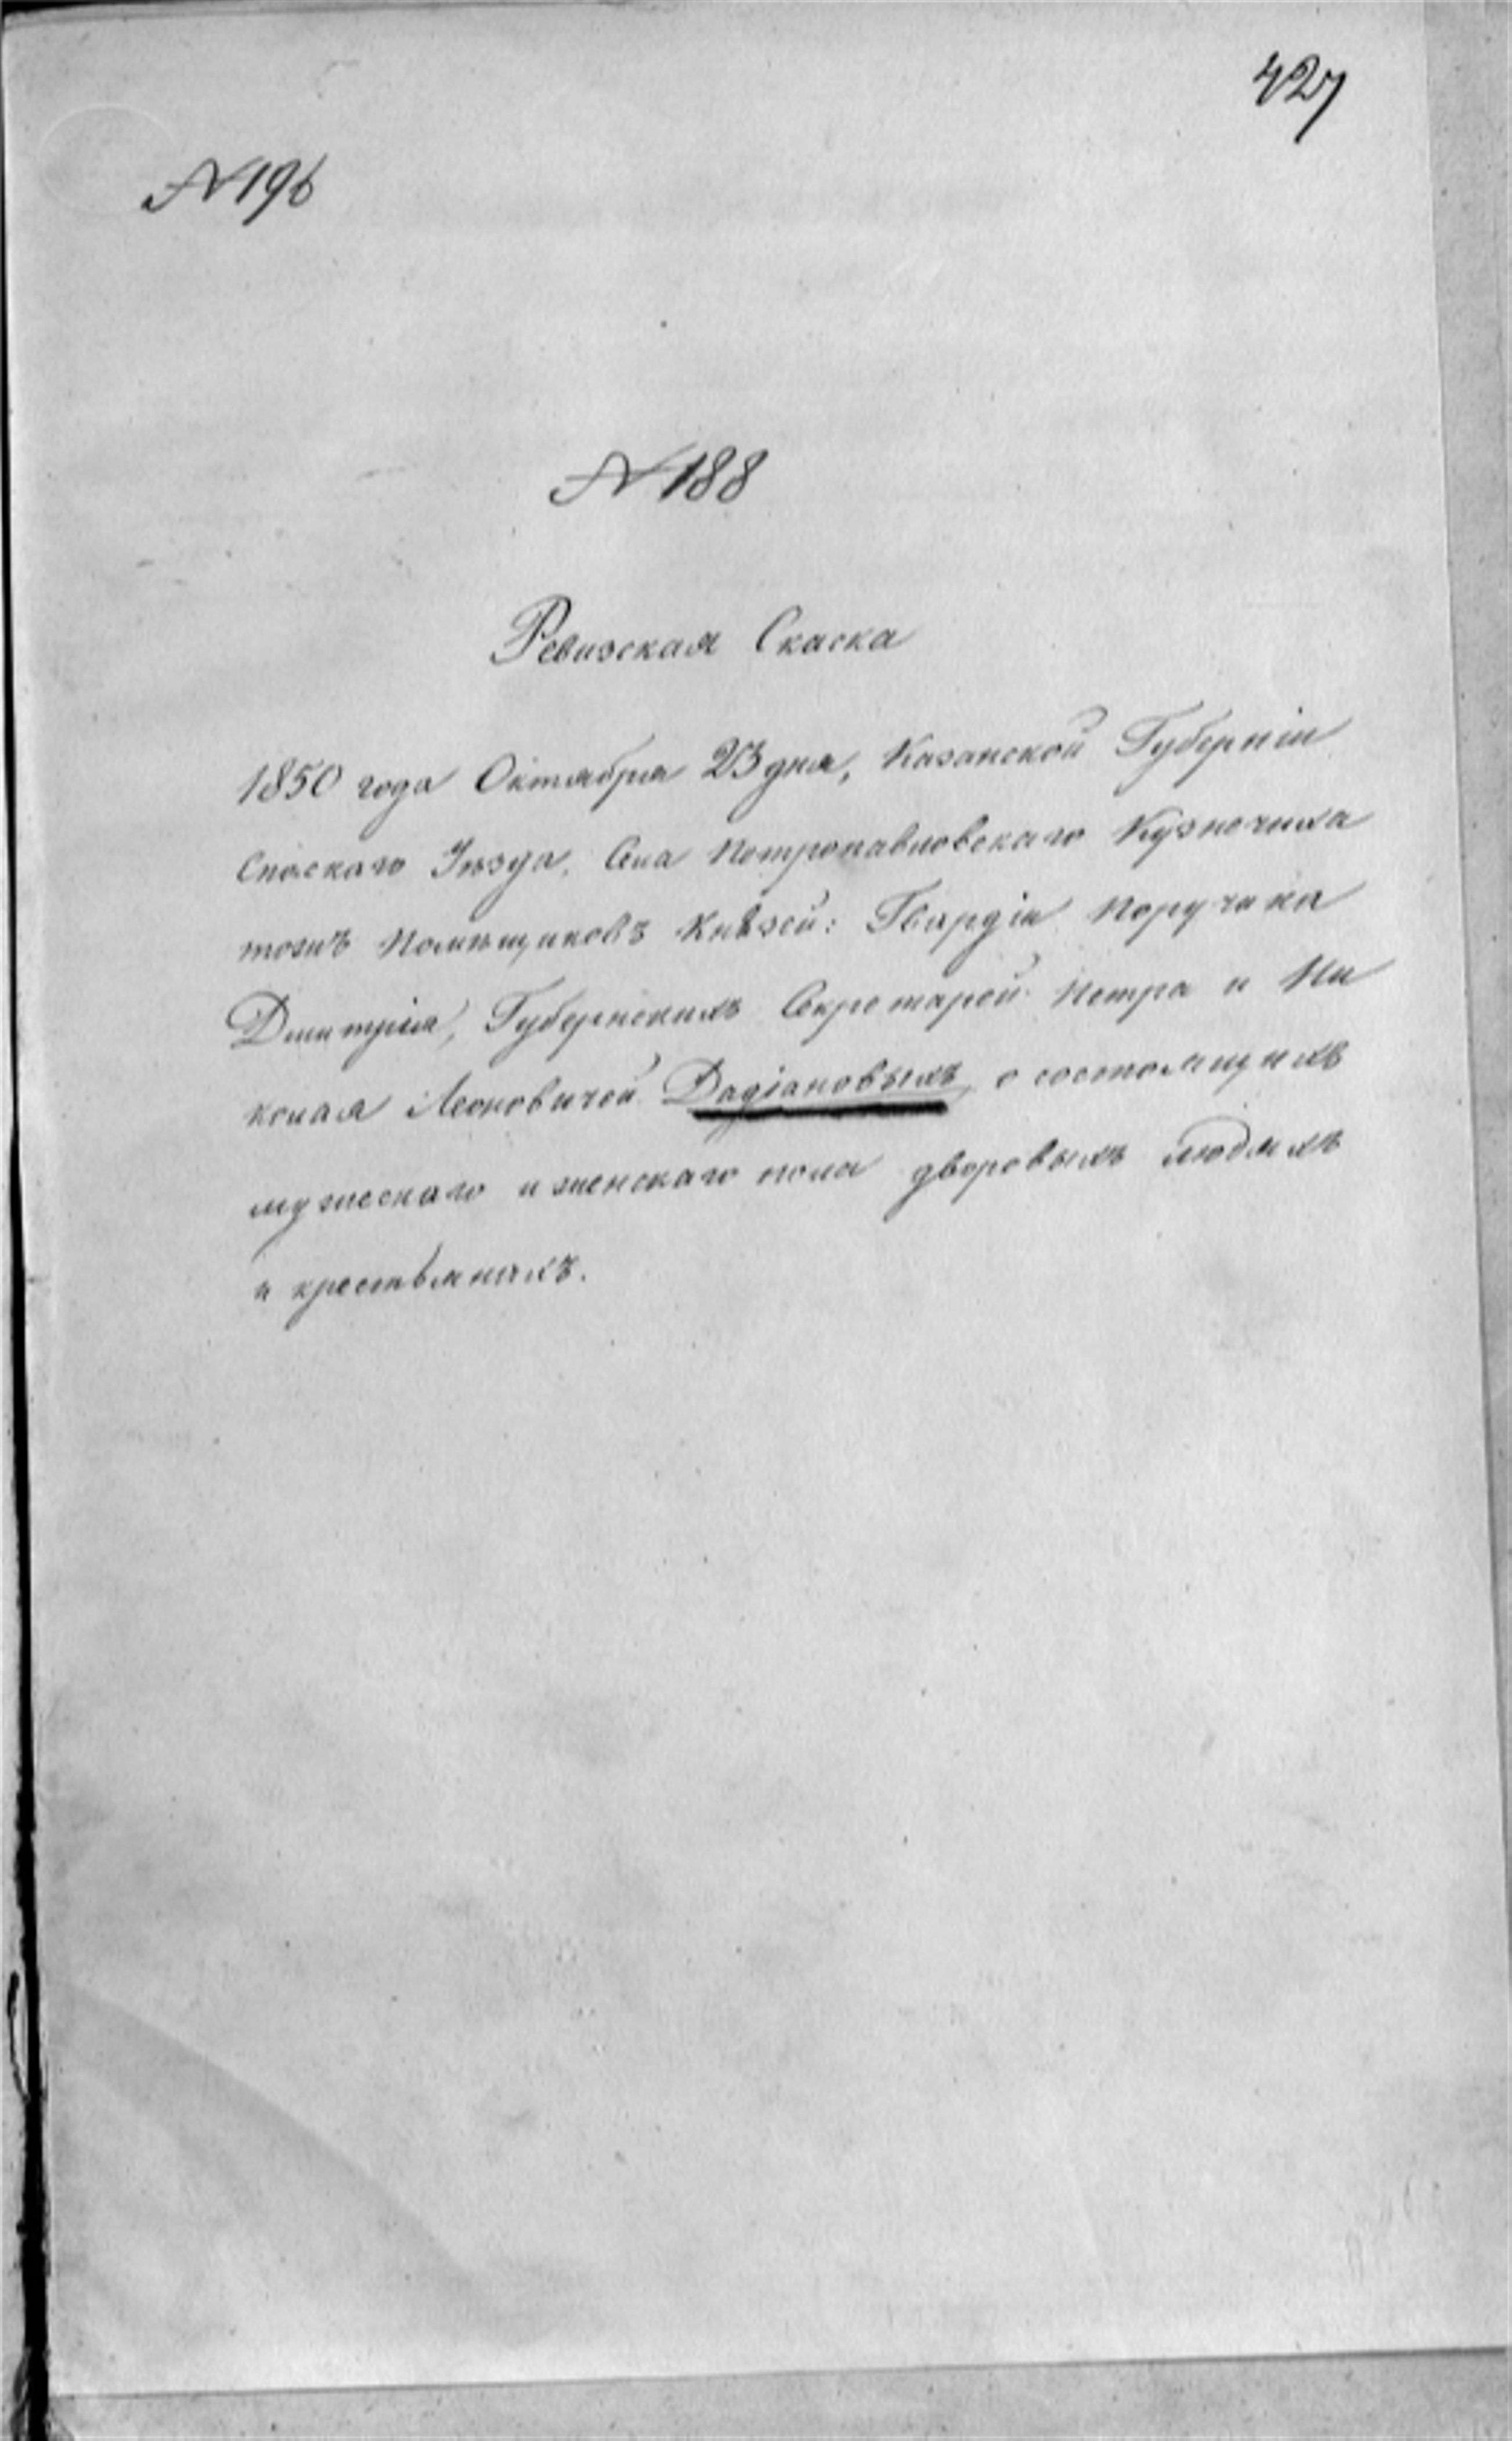 427
№ 196
№ 188
Ревизская Скаска
1850 года Октября 23 дня, Казанской Губернiи
Спаскаго Уѣзда, Села Петропавловскаго Кузнечиха
тожъ Помѣщиковъ Князей: Гвардiи Поручика
Дмитрiя, Губернскихъ Секретарей Петра и Ни
колая Леоновичей Дадiановыхъ, о состоящихъ
мужескаго и женскаго пола дворовыхъ людяхъ
и крестьянахъ.